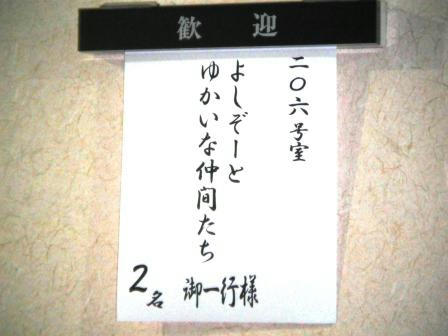 歓迎
二〇六号室
よしぞーと
ゆかいな仲間たち
御一行様
2名